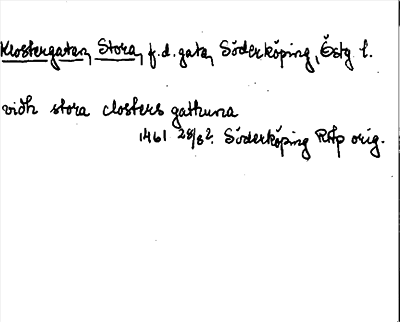 Klostergatan, Stora, f.d. gata, Söderköping, Östg l.
vidh stora closters gathuna
1461 28/8? Söderköping RAp orig.